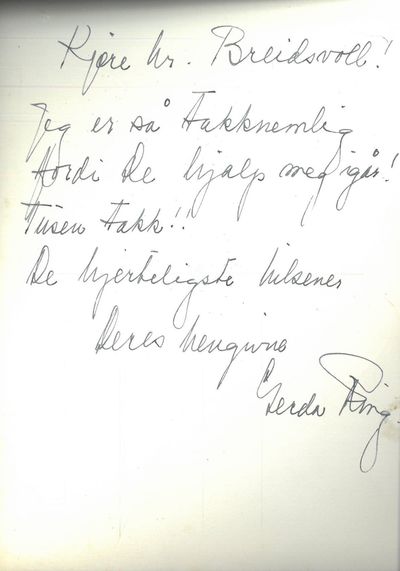 Kjøre hr. Breidsvoll!
Jeg er så takknemlig
fordi De hjalp meg igår!
Tusen takk!!
De hjerteligste hilsener
Deres hengivne
Gerda Ring.